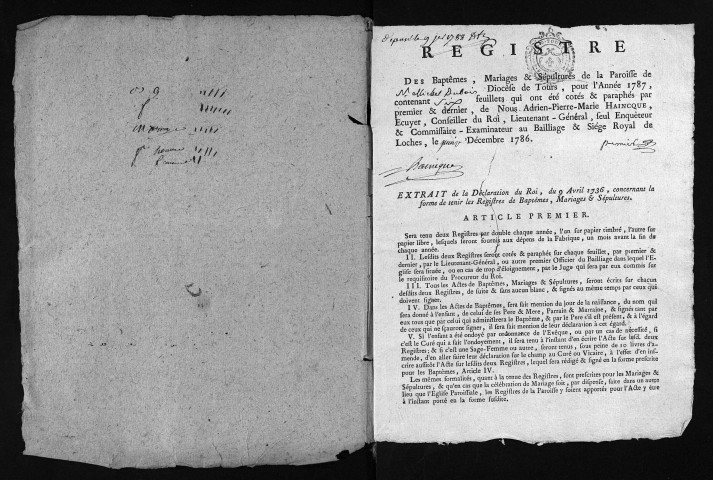 REGISTRE
DES Baptêmes, Mariages & Sépultures de la Paroisse de
St Michel Dubois Diocèse de Tours, pour l'Année 1787,
contenant Six feuillets qui ont été cotés & paraphés par
premier & dernier, de Nous Adrien-Pierre-Marie HAINCQUE,
Ecuyer, Conseiller du Roi, Lieutenant-Général, seul Enquêteur
& Commissaire-Examinateur au Bailliage & Siége Royal de
Loches, le Décembre 1786.
premier
Haincque
EXTRAIT de la Déclaration du Roi, du 9 Avril 1736, concernant la
forme de tenir les Registres de Baptêmes, Mariages & Sépultures.
ARTICLE PREMIER.
Sera tenu deux Registres par double chaque année, l'un sur papier timbré, l'autre sur
papier libre, lesquels seront fournis aux dépens de la Fabrique, un mois avant la fin de
chaque année.
II. Lesdits deux Registres seront cotés & paraphés sur chaque feuillet, par premier &
dernier, par le Lieutenant-Général, ou autre premier Officier du Bailliage dans lequel l'E-
glise sera située, ou en cas de trop d'éloignement, par le Juge qui sera par eux commis sur
le requisitoire du Procureur du Roi.
III. Tous les Actes de Baptêmes, Mariages & Sépultures, seront écrits sur chacun
desdits deux Registres, de suite & sans aucun blanc, & signés au même temps par ceux qui
doivent signer.
IV. Dans les Actes de Baptêmes, sera fait mention du jour de la naissance, du nom qui
sera donné à l'enfant, de celui de ses Pere & Mere, Parrain & Marraine, & signés tant par
eux tous que par celui qui administrera le Baptême, & par le Pere s'il est présent, & à l'égard
de ceux qui ne sçauront signer, il sera fait mention de leur déclaration à cet égard.
V. Si l'enfant a été ondoyé par ordonnance de l'Evêque, ou par un cas de nécessité, si
c'est le Curé qui a fait l'ondoyement, il sera tenu à l'instant d'en écrire l'Acte sur lesd. deux
Registres; & si c'est une Sage-Femme ou autre, seront tenus, sous peine de 10 livres d'a-
mende, d'en aller faire leur déclaration sur le champ au Curé ou Vicaire, à l'effet d'en ins-
crire aussitôt l'Acte sur lesdits deux Registres, lequel sera rédigé & signé en la forme prescrite
pour les Baptêmes, Article IV.
Les mêmes formalités, quant à la tenue des Registres, sont prescrites pour les Mariages &
Sépultures, & qu'en cas que la célébration de Mariage soit, par dispense, faite dans un autre
lieu que l'Eglise Paroissiale, les Registres de la Paroisse y soient apportés pour l'Acte y être
à l'instant porté en la forme susdite.